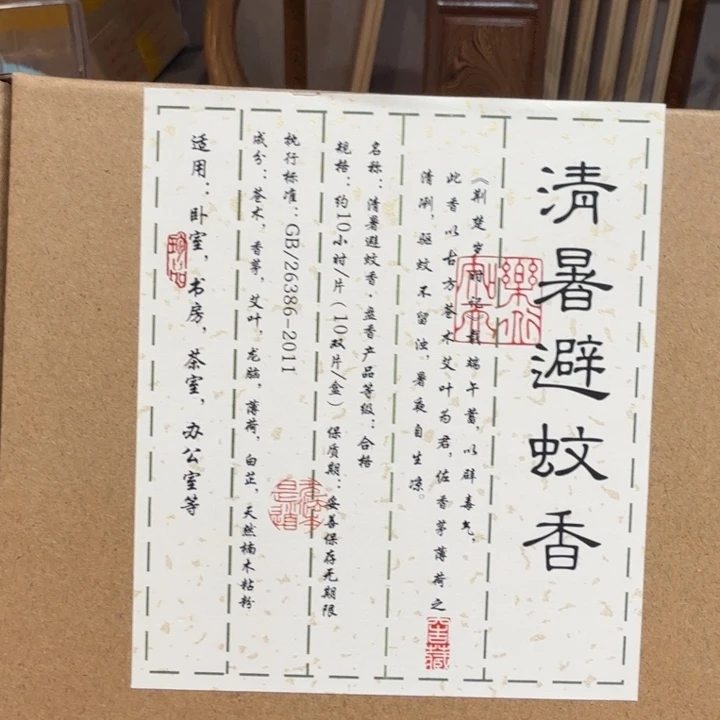 清暑避蚊香
《荆楚岁时记》载端午蓄，以辟毒气，
此香以古方苍术艾叶为君，佐香茅薄荷之
清冽，驱蚊不留浊，暑夜自生凉。
名称：清暑避蚊香·盘香产品等级：合格
规格：约10小时/片（10双片/盒） 保质期：妥善保存无期限
执行标准：GB/26386-2011
成分：苍术，香茅，艾叶，龙脑，薄荷，白芷，天然楠木粘粉
适用：卧室，书房，茶室，办公室等
窖藏